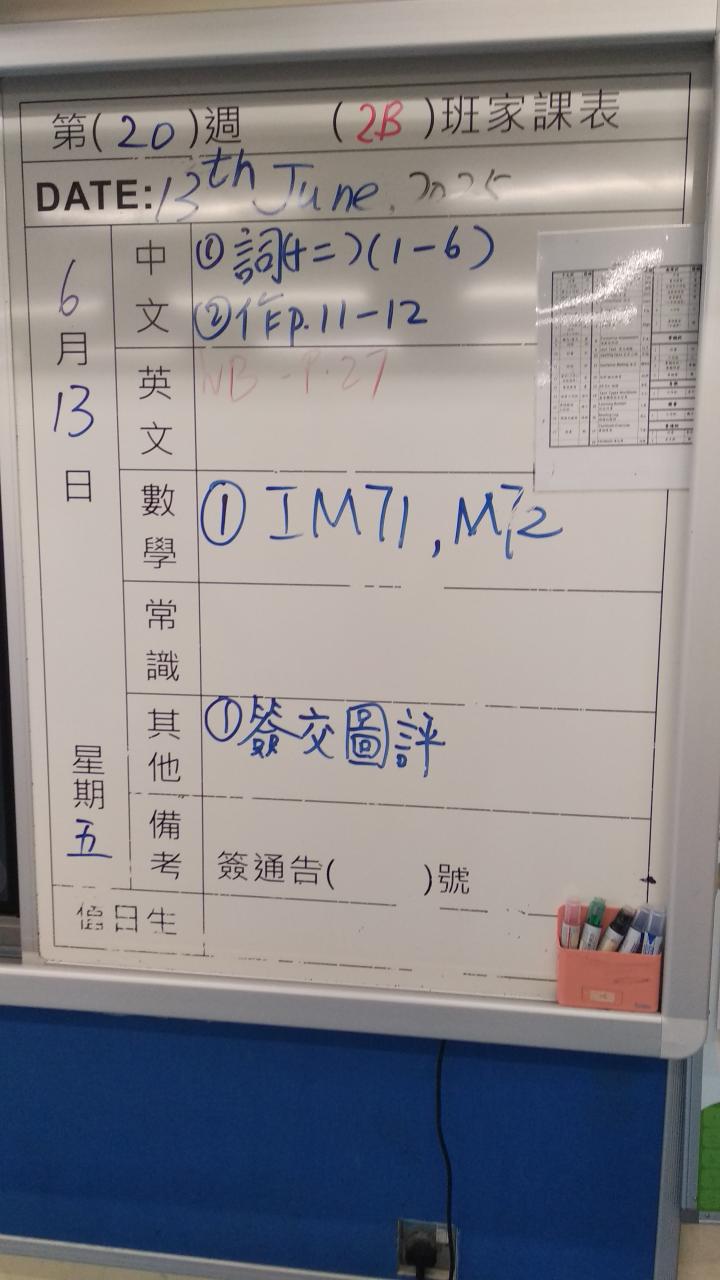 第(20)週 (2B)班家課表
DATE: 13th June, 2025
6月13日
星期五
中文
①詞(十二)(1-6)
②作p.11-12
英文
NB - P.27
數學
① IM71, M72
常識
其他
①簽交圖評
備考
簽通告( )號
值日生